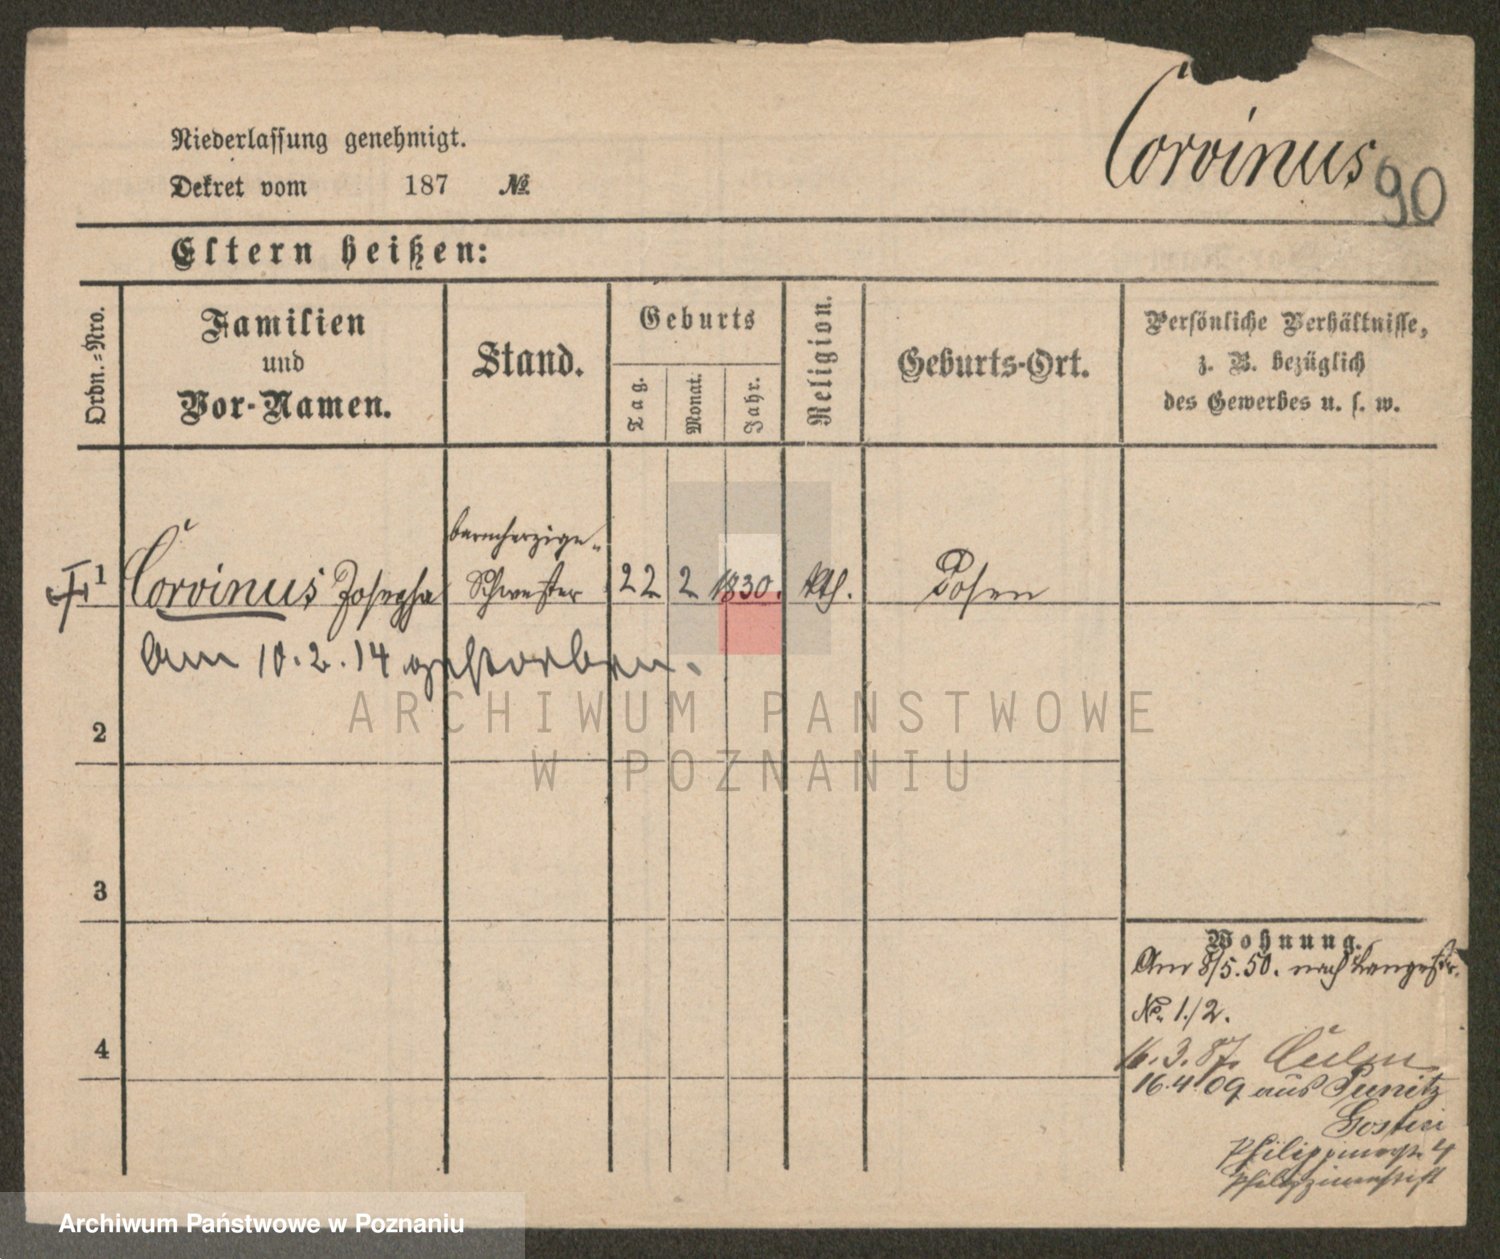 Niederlassung genehmigt.
Corvinus
Dekret vom 187 No.
90
Eltern heißen:
Ordn.-Nro.
Familien
und
Vor-Namen.
Stand.
Geburts
Tag.
Monat.
Jahr.
Religion.
Geburts-Ort.
Persönliche Verhältnisse,
z. B. bezüglich
des Gewerbes u. s. w.
1
Corvinus Josepha
barmherzige-
Schwester
22
2
1830.
kth.
Posen
Am 10.2.14 gestorben.
ARCHIWUM PAŃSTWOWE
W POZNANIU
2
3
4
Wohnung.
Am 8/5.50. nach Langestr.
No. 1/2.
16.3.87. Culm
16.4.09 aus Punitz
Philippinenstift
Archiwum Państwowe w Poznaniu